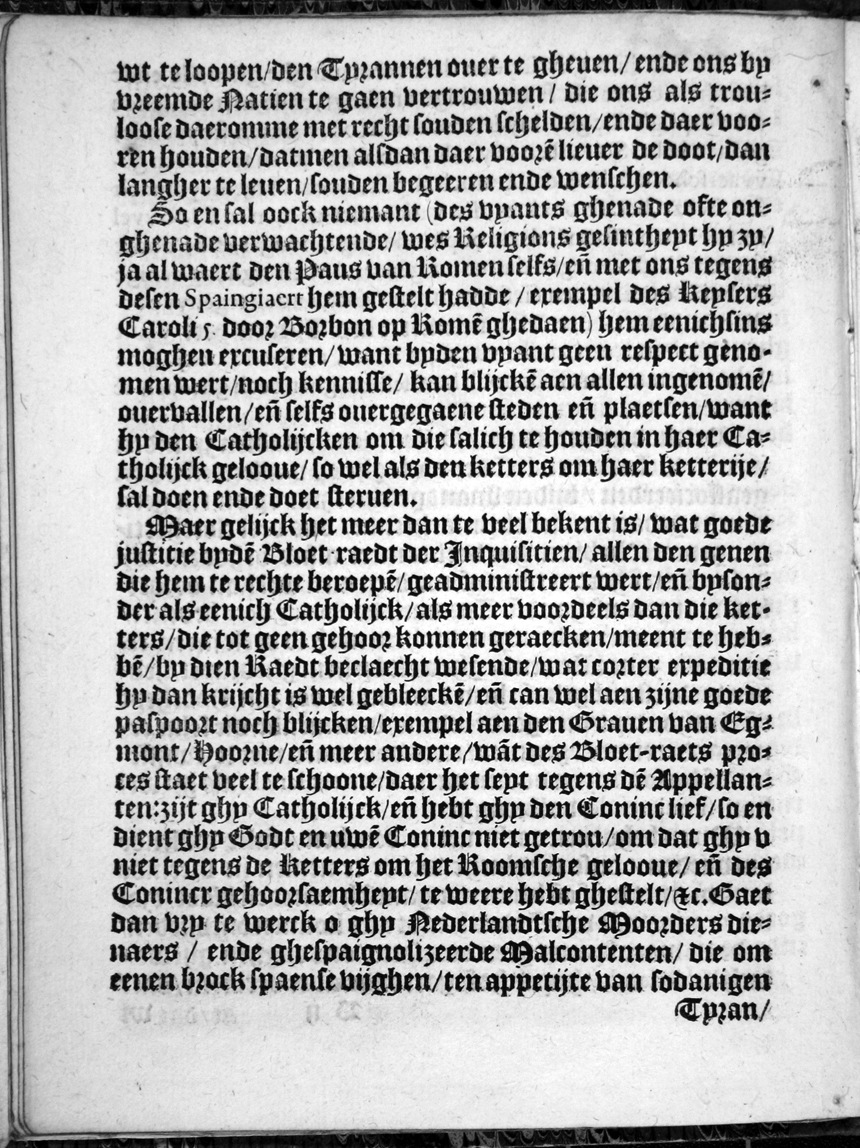 wt te loopen/den Tyrannen ouer te gheuen/ ende ons by
vreemde Natien te gaen vertrouwen / die ons als trou-
loose daeromme met recht souden schelden/ende daer voo-
ren houden/datmen alsdan daer voorē lieuer de doot/dan
langher te leuen/souden begeeren ende wenschen.
So en sal oock niemant (des vyants ghenade ofte on-
ghenade verwachtende/ wes Religions gesintheyt hy zy/
ja al waert den Paus van Romen selfs/eñ met ons tegens
desen Spaingiaert hem gestelt hadde / exempel des Keysers
Caroli 5. door Borbon op Romē ghedaen) hem eenichsins
moghen excuseren/want byden vyant geen respect geno-
men wert/noch kennisse/ kan blijckē aen allen ingenomē/
ouervallen/eñ selfs ouergegaene steden eñ plaetsen/want
hy den Catholijcken om die salich te houden in haer Ca-
tholijck gelooue/ so wel als den ketters om haer ketterije/
sal doen ende doet steruen.
Maer gelijck het meer dan te veel bekent is/ wat goede
justitie bydē Bloet-raedt der Inquisitien/ allen den genen
die hem te rechte beroepē/geadministreert wert/eñ byson-
der als eenich Catholijck/als meer voordeels dan die ket-
ters/die tot geen gehoor konnen geraecken/meent te heb-
bē/by dien Raedt beclaecht wesende/wat corter expeditie
hy dan krijcht is wel gebleeckē/eñ can wel aen zijne goede
paspoort noch blijcken/exempel aen den Grauen van Eg-
mont/Hoorne/eñ meer andere/wāt des Bloet-raets pro-
ces staet veel te schoone/daer het seyt tegens dē Appellan-
ten:zijt ghy Catholijck/eñ hebt ghy den Coninc lief/so en
dient ghy Godt en uwē Coninc niet getrou/om dat ghy v
niet tegens de Ketters om het Roomsche gelooue/ eñ des
Conincx gehoorsaemheyt/ te weere hebt ghestelt/&c. Gaet
dan vry te werck o ghy Nederlandtsche Moorders die-
naers / ende ghespaignolizeerde Malcontenten/ die om
eenen brock spaense vijghen/ten appetijte van sodanigen
Tyran/